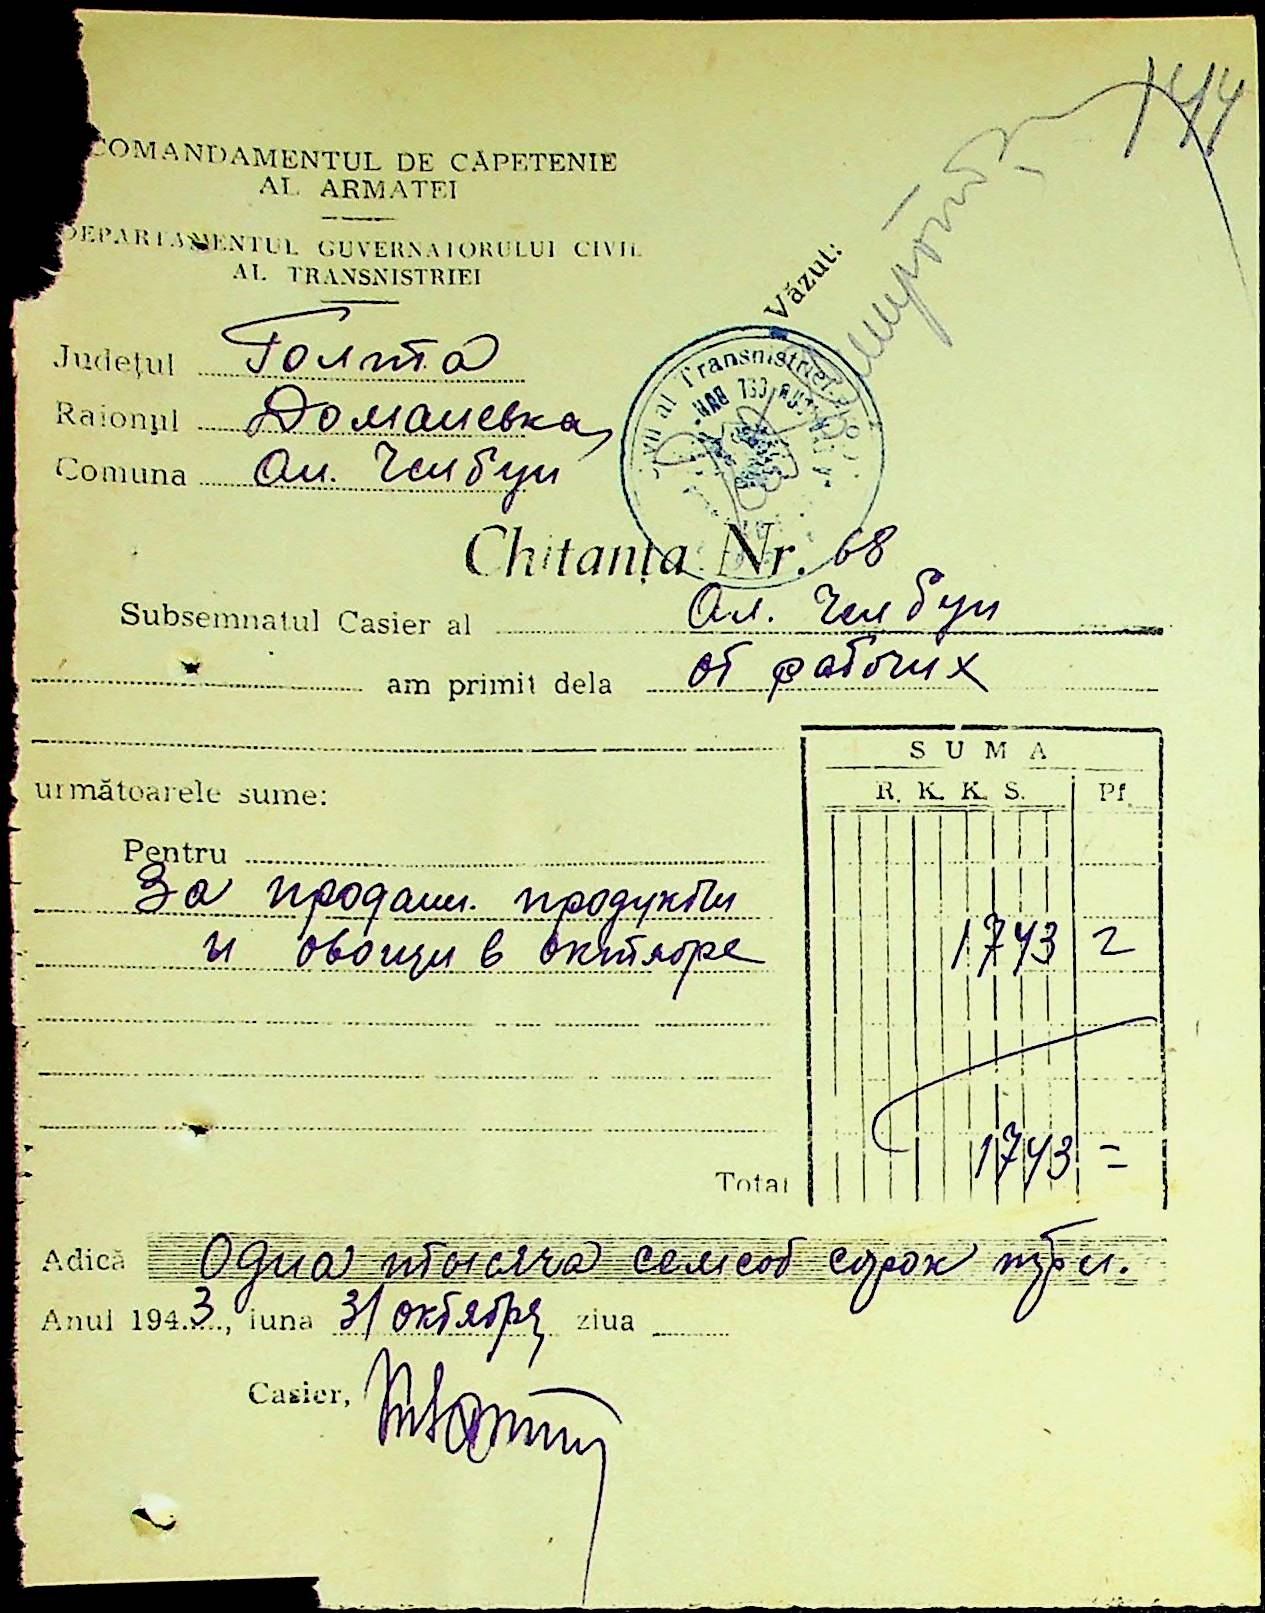 144
COMANDAMENTUL DE CĂPETENIE
AL ARMATEI
DEPARTAMENTUL GUVERNATORULUI CIVIL
AL TRANSNISTRIEI
Văzut:
Județul Голта
Raionul Доманевка,
Comuna Ал.
al Transnistriei
Chitanța Nr. 68
Subsemnatul Casier al Ал.
am primit dela от рабочих
SUMA
următoarele sume:
R. K. K. S. Pf.
Pentru
За продан. продукты
и овощи в октябре 1743 =
1743 =
Total
Adică Одна тысяча семсот сорок три.
Anul 1943, luna 31 октября ziua
Casier,